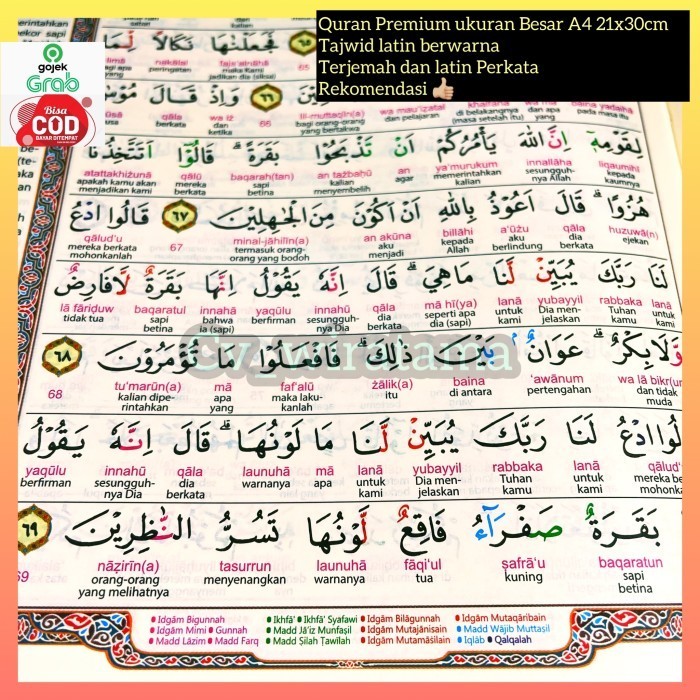 Quran Premium ukuran Besar A4 21x30cm
Tajwid latin berwarna
Terjemah dan latin Perkata
Rekomendasi 👍🏼
gojek
Grab
Bisa
COD
BAYAR DITEMPAT
فَجَعَلْنٰهَا نَكَالًا لِّمَا
faja'alnāhā nakālal
maka Kami peringatan
jadikan dia (siksa)
65
٦٦ وَاِذْ قَالَ
lil-muttaqīn(a) wa mau'iẓatal khalfahā
bagi orang-orang dan pelajaran (di belakangnya)
yang bertakwa
66
wa iż qāla
dan ketika berkata
لِقَوْمِهٖٓ اِنَّ اللّٰهَ يَأْمُرُكُمْ اَنْ تَذْبَحُوْا بَقَرَةً ۗ قَالُوْٓا اَتَتَّخِذُنَا
liqaumihī innallāha ya'murukum an tażbaḥū baqarah(tan) qālū atattakhiżunā
kepada kaumnya sesungguhnya Allah memerintahkan kalian agar menyembelih sapi betina mereka berkata apakah kamu akan menjadikan kami
هُزُوًا ۗ قَالَ اَعُوْذُ بِاللّٰهِ اَنْ اَكُوْنَ مِنَ الْجٰهِلِيْنَ ٦٧ قَالُوا ادْعُ
huzuwā(n) qāla a'ūżu billāhi an akūna minal-jāhilīn(a) 67 qālud'u
ejekan dia berkata aku berlindung kepada Allah aku menjadi termasuk orang-orang yang bodoh mereka berkata mohonkanlah
لَنَا رَبَّكَ يُبَيِّنْ لَّنَا مَا هِيَ ۗ قَالَ اِنَّهٗ يَقُوْلُ اِنَّهَا بَقَرَةٌ لَّا فَارِضٌ
lanā rabbaka yubayyil lanā mā hī(ya) qāla innahū yaqūlu innahā baqaratul lā fāriḍuw
untuk kami Tuhan kamu Dia menjelaskan untuk kami seperti apa dia (sapi) dia berkata sesungguhnya Dia berfirman bahwa ia (sapi) sapi betina tidak tua
وَّلَا بِكْرٌ ۗ عَوَانٌۢ بَيْنَ ذٰلِكَ ۗ فَافْعَلُوْا مَا تُؤْمَرُوْنَ ٦٨
wa lā bikr(un) 'awānum baina żālik(a) faf'alū mā tu'marūn(a) 68
dan tidak muda pertengahan di antara itu maka lakukanlah apa yang kalian diperintahkan
قَالُوا ادْعُ لَنَا رَبَّكَ يُبَيِّنْ لَّنَا مَا لَوْنُهَا ۗ قَالَ اِنَّهٗ يَقُوْلُ
qālud' lanā rabbaka yubayyil lanā mā launuhā qāla innahū yaqūlu
mereka be mohonk untuk kami Tuhan kamu Dia menjelaskan untuk kami apa warnanya dia berkata sesungguhnya Dia berfirman
بَقَرَةٌ صَفْرَاۤءُ فَاقِعٌ لَّوْنُهَا تَسُرُّ النّٰظِرِيْنَ ٦٩
baqaratun ṣafrā'u fāqi'ul launuhā tasurrun nāẓirīn(a) 69
sapi betina kuning tua warnanya menyenangkan orang-orang yang melihatnya
Idgām Bigunnah Ikhfā' Ikhfā' Syafawi Idgām Bilāgunnah Idgām Mutaqāribain
Idgām Mimi Gunnah Madd Jā'iz Munfaṣil Idgām Mutajānisain Madd Wājib Muttaṣil
Madd Lāzim Madd Farq Madd Ṣilah Ṭawīlah Idgām Mutamāṡilain Iqlāb Qalqalah